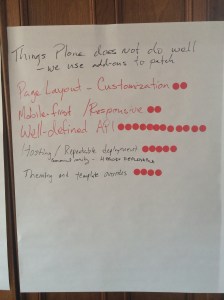 Things Plone does not do well
- we use add-ons to patch
Page Layout - Customization
Mobile-first / Responsive
Well-defined API
Hosting / Repeatable deployment
Theming and template overrides